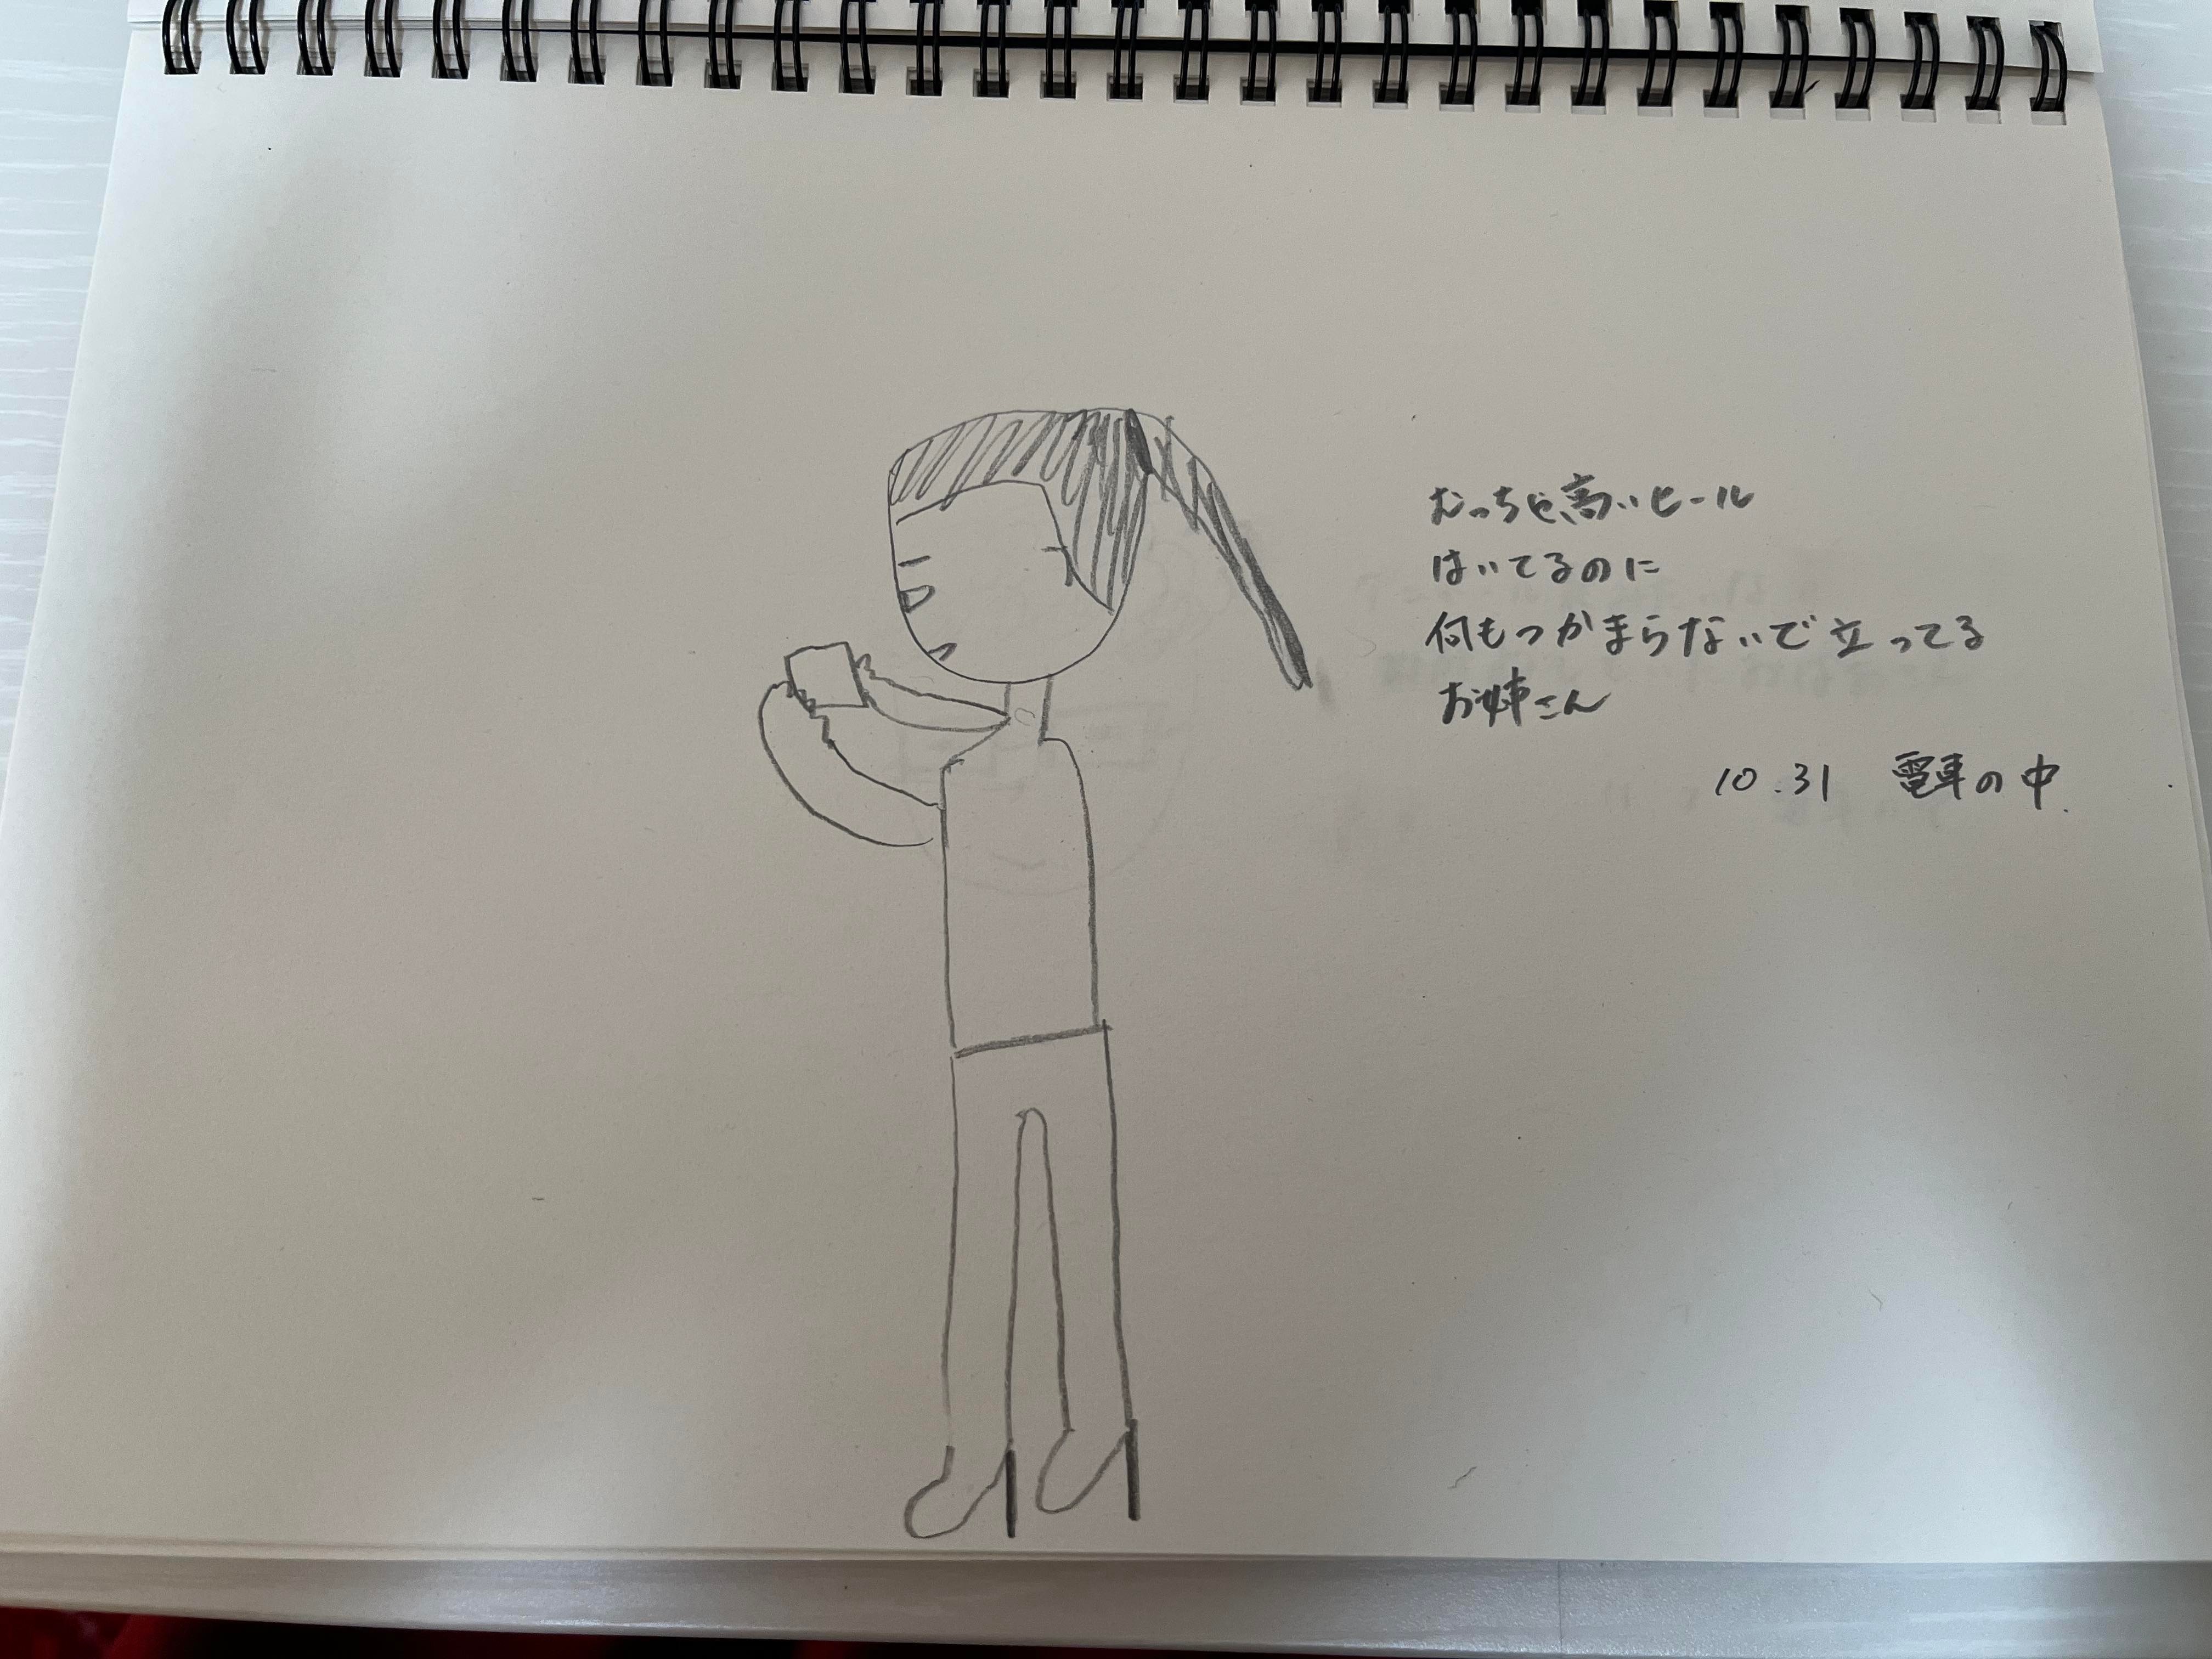 むっちゃ高いヒール
はいてるのに
何もつかまらないで立ってる
お姉さん
10.31 電車の中